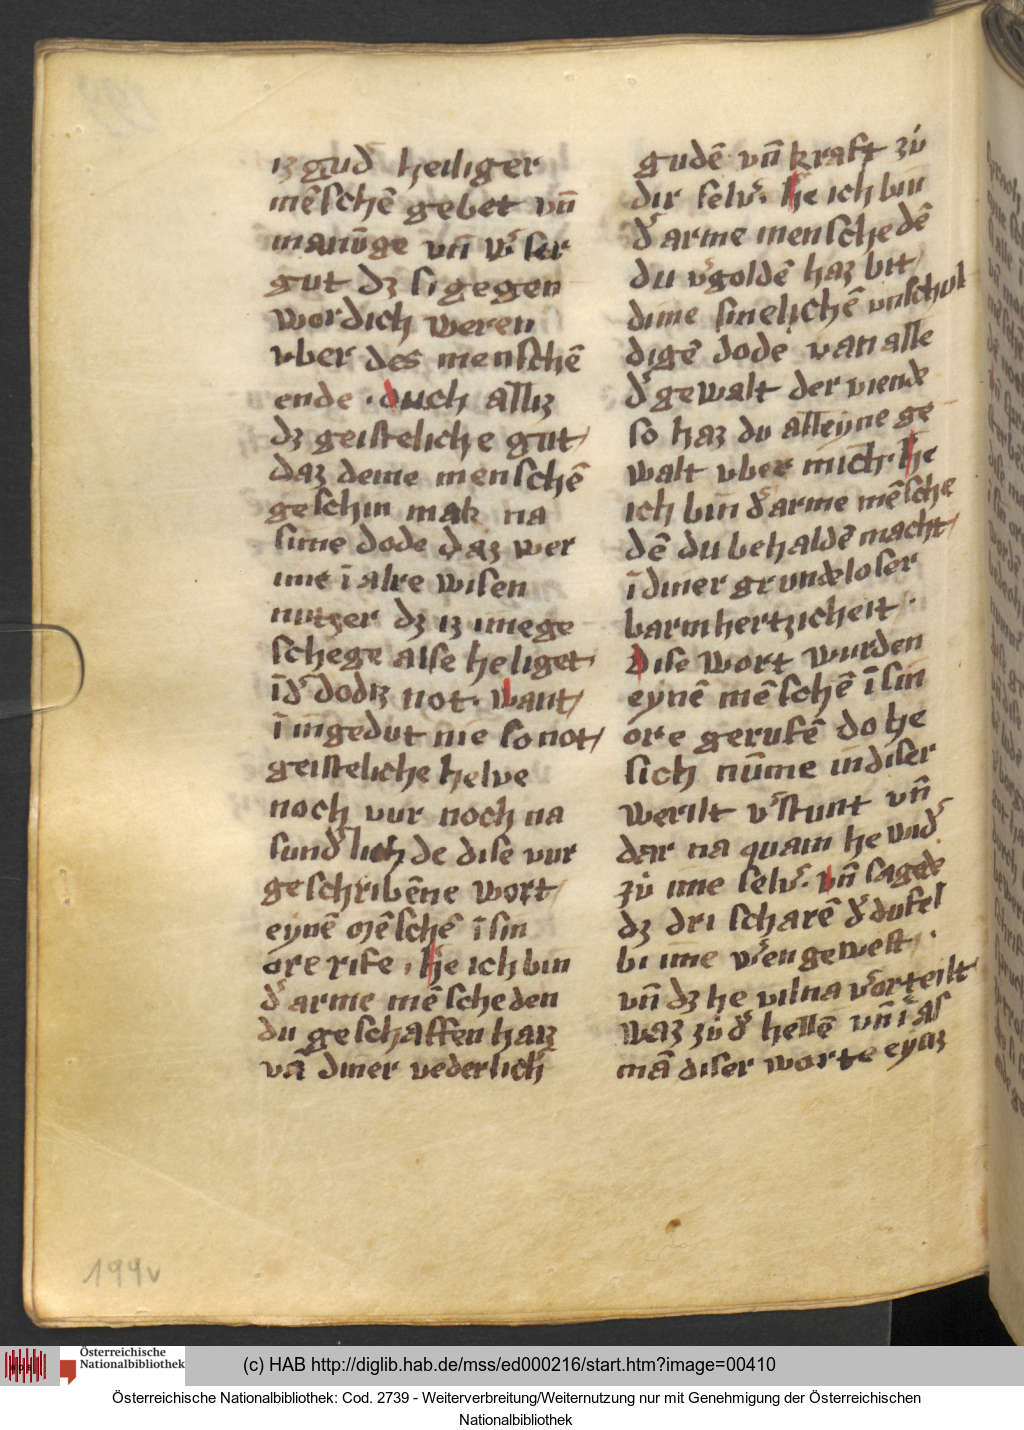 iz gud̛ heiliger
mēschē gebet vn̄
manūge vn̄ w̛ ser
gut dz si gegen
wordich weren
vber des menschē
ende · duch alliz
dz geisteliche gut
daz deme menschē
geschin mak na
sime dode daz wer
ime ī alre wisen
nutzer dz iz imege
schege alse heliget
īd̛ dodiz not · want
ī mgedut nie so not
geisteliche helve
noch vur noch na
sund̛lich de dise vur
geschribēne wort
eynē mēschē ī sin
ore rife · he ich bin
d̛ arme mēsche den
du geschaffen haiz
vā diner vederlich̛
gudē vn̄ kraft zů
dir selv̛ · he ich bin
d̛ arme mensche dē
du v̛goldē haz bit
dime sinelichē vnschul
digē dode van alle
d̛ gewalt der viende
so haz du alleyne ge
walt vber mich · he
ich bin d̛ arme mēsche
dē du behaldē macht
ī diner grundeloser
barmhertzicheit ·
dise wort wurden
eynē mēschē ī sin
ore gerufē do he
sich nūme in diser
werilt v̛stunt vn̄
dar na quam he wid̛
zů ime selv̛ · vn̄ sagede
dz dri scharē d̛ dufel
bi ime w̛en gewest ·
vn̄ dz he vilna v̛orteilt
waz zů d̛ hellē vn̄ ī d̛ as
mā diser worte eyniz
199v
Österreichische
Nationalbibliothek
(c) HAB http://diglib.hab.de/mss/ed000216/start.htm?image=00410
Österreichische Nationalbibliothek: Cod. 2739 - Weiterverbreitung/Weiternutzung nur mit Genehmigung der Österreichischen
Nationalbibliothek